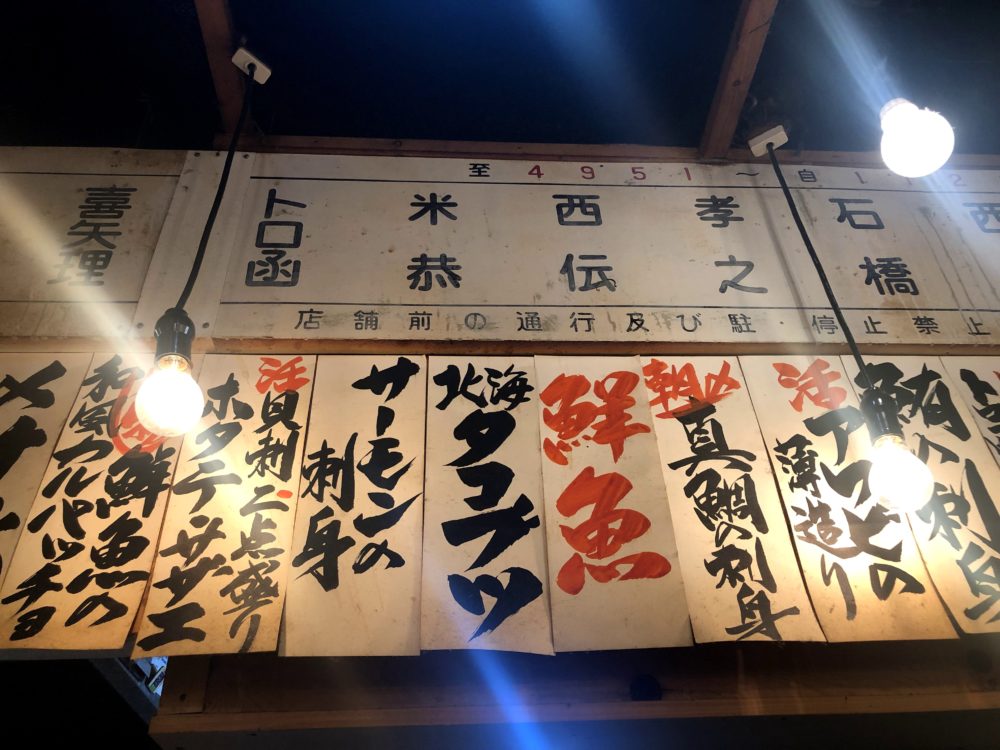 至 4951 ～ 自 112
西
石橋
孝之
西伝
米恭
トロ函
喜矢理
店舗前の通行及び駐 停止禁止
鮪の刺身
活アワビの
薄造り
朝〆
真鯛の刺身
鮮魚
北海
タコブツ
サーモンの
刺身
活貝刺二点盛り
ホタテ サザエ
鮮魚の
和風カルパッチョ